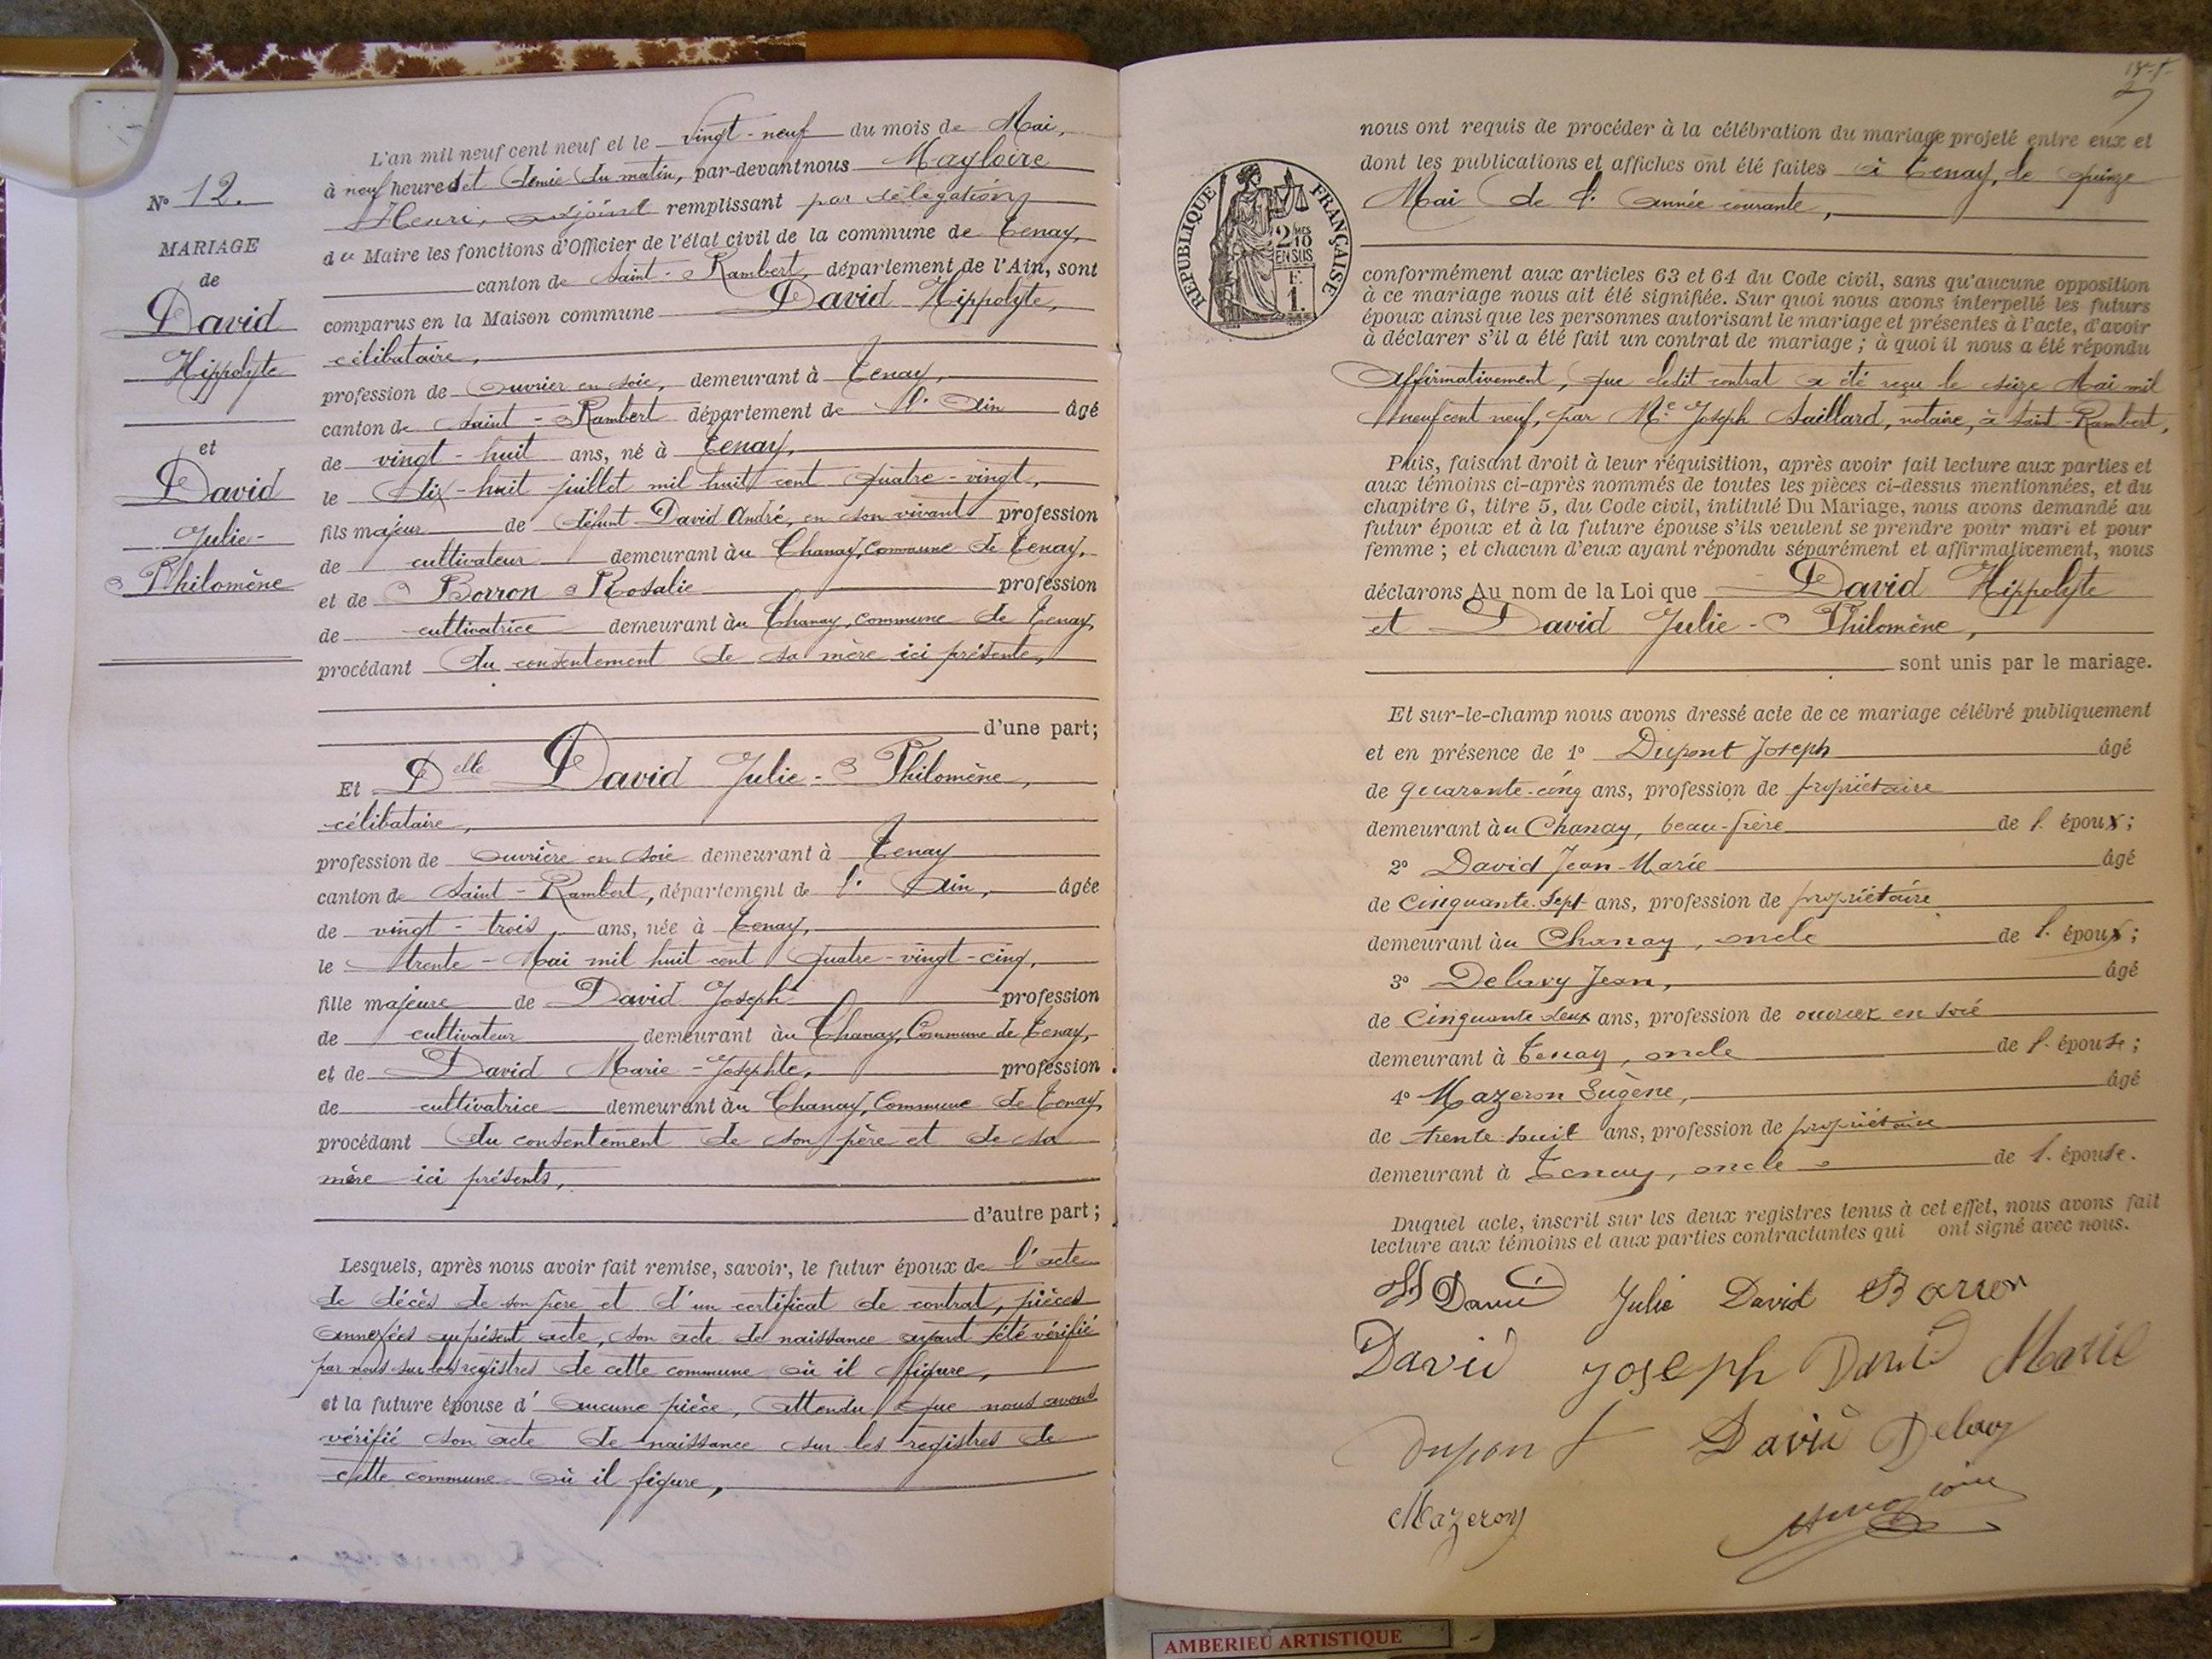 N° 12.
MARIAGE
de
David
Hippolyte
et
David
Julie-
Philomène
L'an mil neuf cent neuf et le vingt-neuf du mois de Mai,
à neuf heures et demie du matin, par-devant nous Magloire
Henri, adjoint remplissant par délégation
du Maire les fonctions d'Officier de l'état civil de la commune de Tenay,
canton de Saint-Rambert, département de l'Ain, sont
comparus en la Maison commune David Hippolyte,
célibataire,
profession de ouvrier en soie, demeurant à Tenay,
canton de Saint-Rambert département de l'Ain âgé
de vingt-huit ans, né à Tenay,
le dix-huit juillet mil huit cent quatre-vingt,
fils majeur de défunt David André, en son vivant profession
de cultivateur demeurant àu Chanay, commune de Tenay,
et de Borron Rosalie profession
de cultivatrice demeurant àu Chanay, commune de Tenay,
procédant du consentement de sa mère ici présente,
d'une part;
Et Delle David Julie-Philomène,
célibataire,
profession de ouvrière en soie demeurant à Tenay
canton de Saint-Rambert, département de l'Ain, âgée
de vingt-trois ans, née à Tenay,
le trente-Mai mil huit cent quatre-vingt-cinq,
fille majeure de David Joseph profession
de cultivateur demeurant àu Chanay, Commune de Tenay,
et de David Marie-Josephte, profession
de cultivatrice demeurant àu Chanay, Commune de Tenay,
procédant du consentement de son père et de sa
mère ici présents,
d'autre part;
Lesquels, après nous avoir fait remise, savoir, le futur époux de l'acte
de décès de son père et d'un certificat de contrat, pièces
annexées au présent acte, son acte de naissance ayant été vérifié
par nous sur les registres de cette commune où il figure,
et la future épouse d'aucune pièce, attendu que nous avons
vérifié son acte de naissance sur les registres de
cette commune où il figure,
RÉPUBLIQUE FRANÇAISE
2/10 MES
EN SUS
F.
1.
nous ont requis de procéder à la célébration du mariage projeté entre eux et
dont les publications et affiches ont été faites à Tenay, le quinze
Mai de l'année courante,
conformément aux articles 63 et 64 du Code civil, sans qu'aucune opposition
à ce mariage nous ait été signifiée. Sur quoi nous avons interpellé les futurs
époux ainsi que les personnes autorisant le mariage et présentes à l'acte, d'avoir
à déclarer s'il a été fait un contrat de mariage; à quoi il nous a été répondu
affirmativement, que ledit contrat a été reçu le seize Mai mil
neuf cent neuf, par Me Joseph Saillard, notaire, à Saint-Rambert,
Puis, faisant droit à leur réquisition, après avoir fait lecture aux parties et
aux témoins ci-après nommés de toutes les pièces ci-dessus mentionnées, et du
chapitre 6, titre 5, du Code civil, intitulé Du Mariage, nous avons demandé au
futur époux et à la future épouse s'ils veulent se prendre pour mari et pour
femme; et chacun d'eux ayant répondu séparément et affirmativement, nous
déclarons Au nom de la Loi que David Hippolyte
et David Julie-Philomène,
sont unis par le mariage.
Et sur-le-champ nous avons dressé acte de ce mariage célébré publiquement
et en présence de 1° Dupont Joseph âgé
de quarante-cinq ans, profession de propriétaire
demeurant àu Chanay, beau-frère de l'époux;
2° David Jean-Marie âgé
de cinquante-sept ans, profession de propriétaire
demeurant àu Chanay, oncle de l'époux;
3° Delavy Jean, âgé
de cinquante deux ans, profession de ouvrier en soie
demeurant à Tenay, oncle de l'épouse;
4° Mazeron Eugène, âgé
de trente-huit ans, profession de propriétaire
demeurant à Tenay, oncle de l'épouse.
Duquel acte, inscrit sur les deux registres tenus à cet effet, nous avons fait
lecture aux témoins et aux parties contractantes qui ont signé avec nous.
H David Julie David Borron
David Joseph David Marie
Dupont David Delavy
Mazeron
AMBERIEU ARTISTIQUE